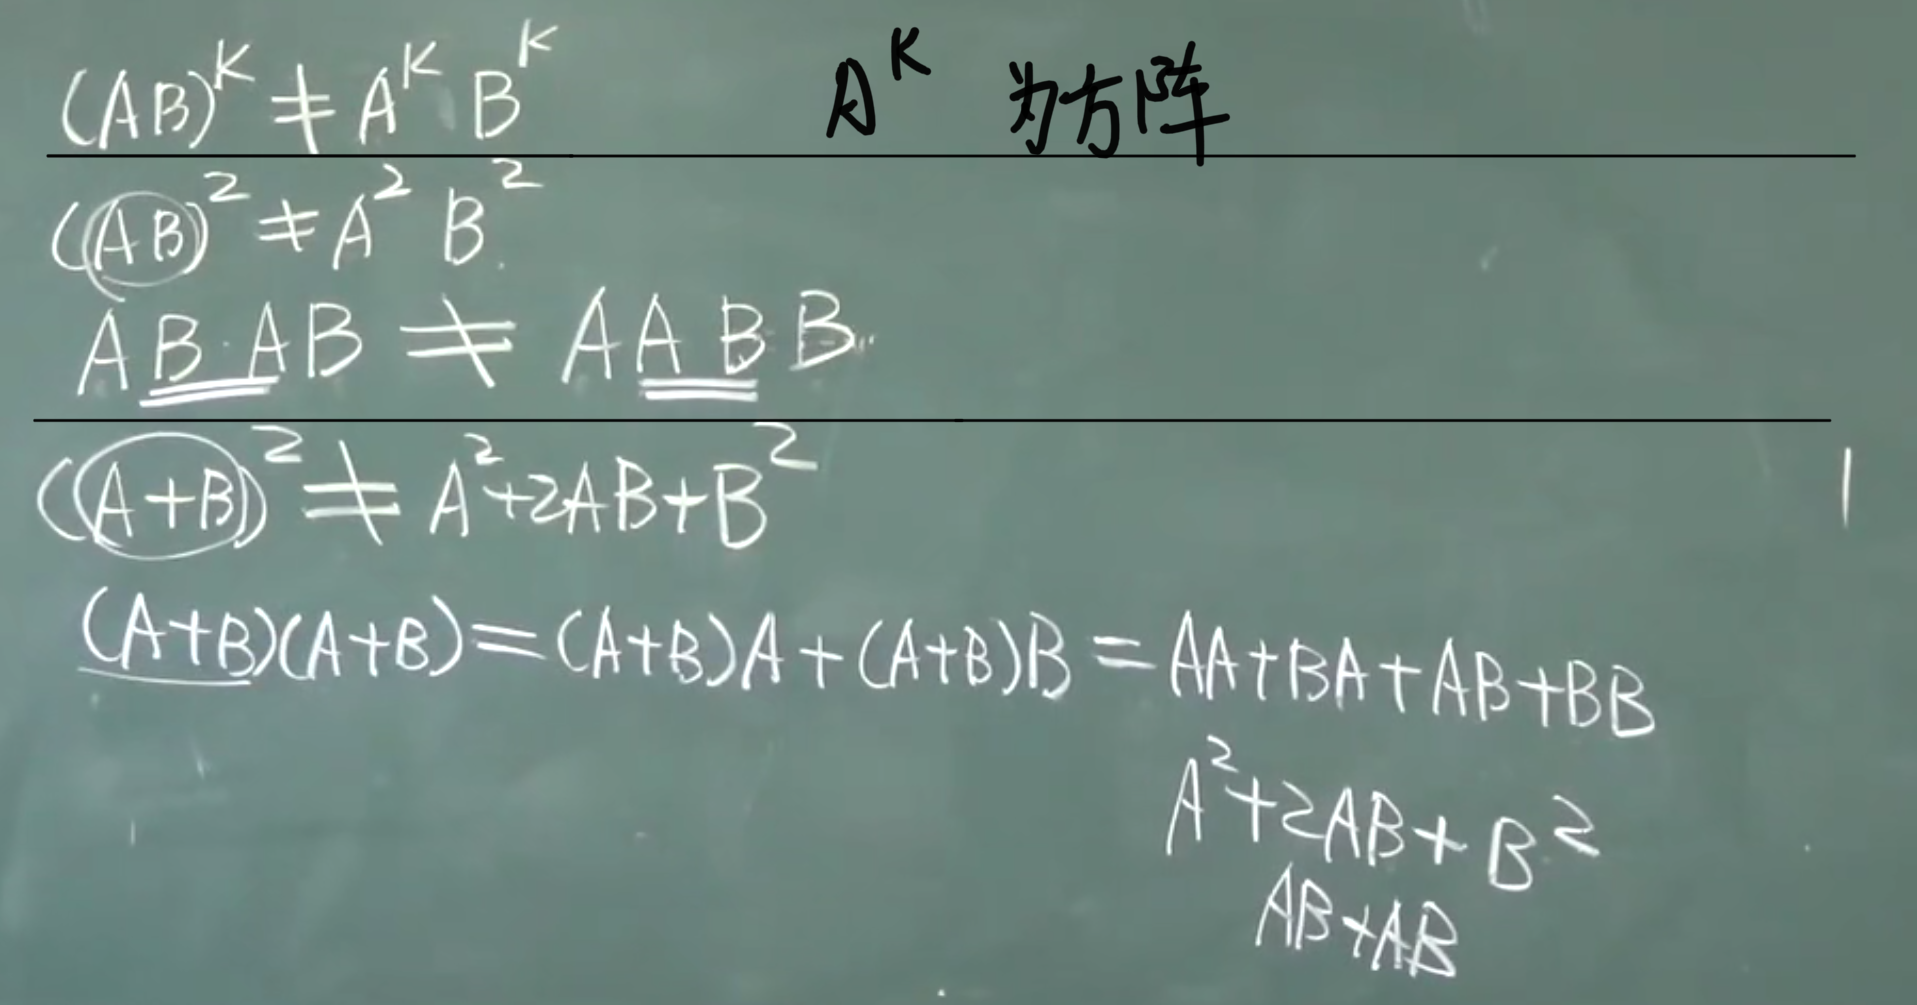 (AB)^K ≠ A^K B^K
A^K 为方阵
(AB)^2 ≠ A^2 B^2
AB·AB ≠ AABB
(A+B)^2 ≠ A^2+2AB+B^2
(A+B)(A+B)=(A+B)A+(A+B)B=AA+BA+AB+BB
A^2+2AB+B^2
AB+AB